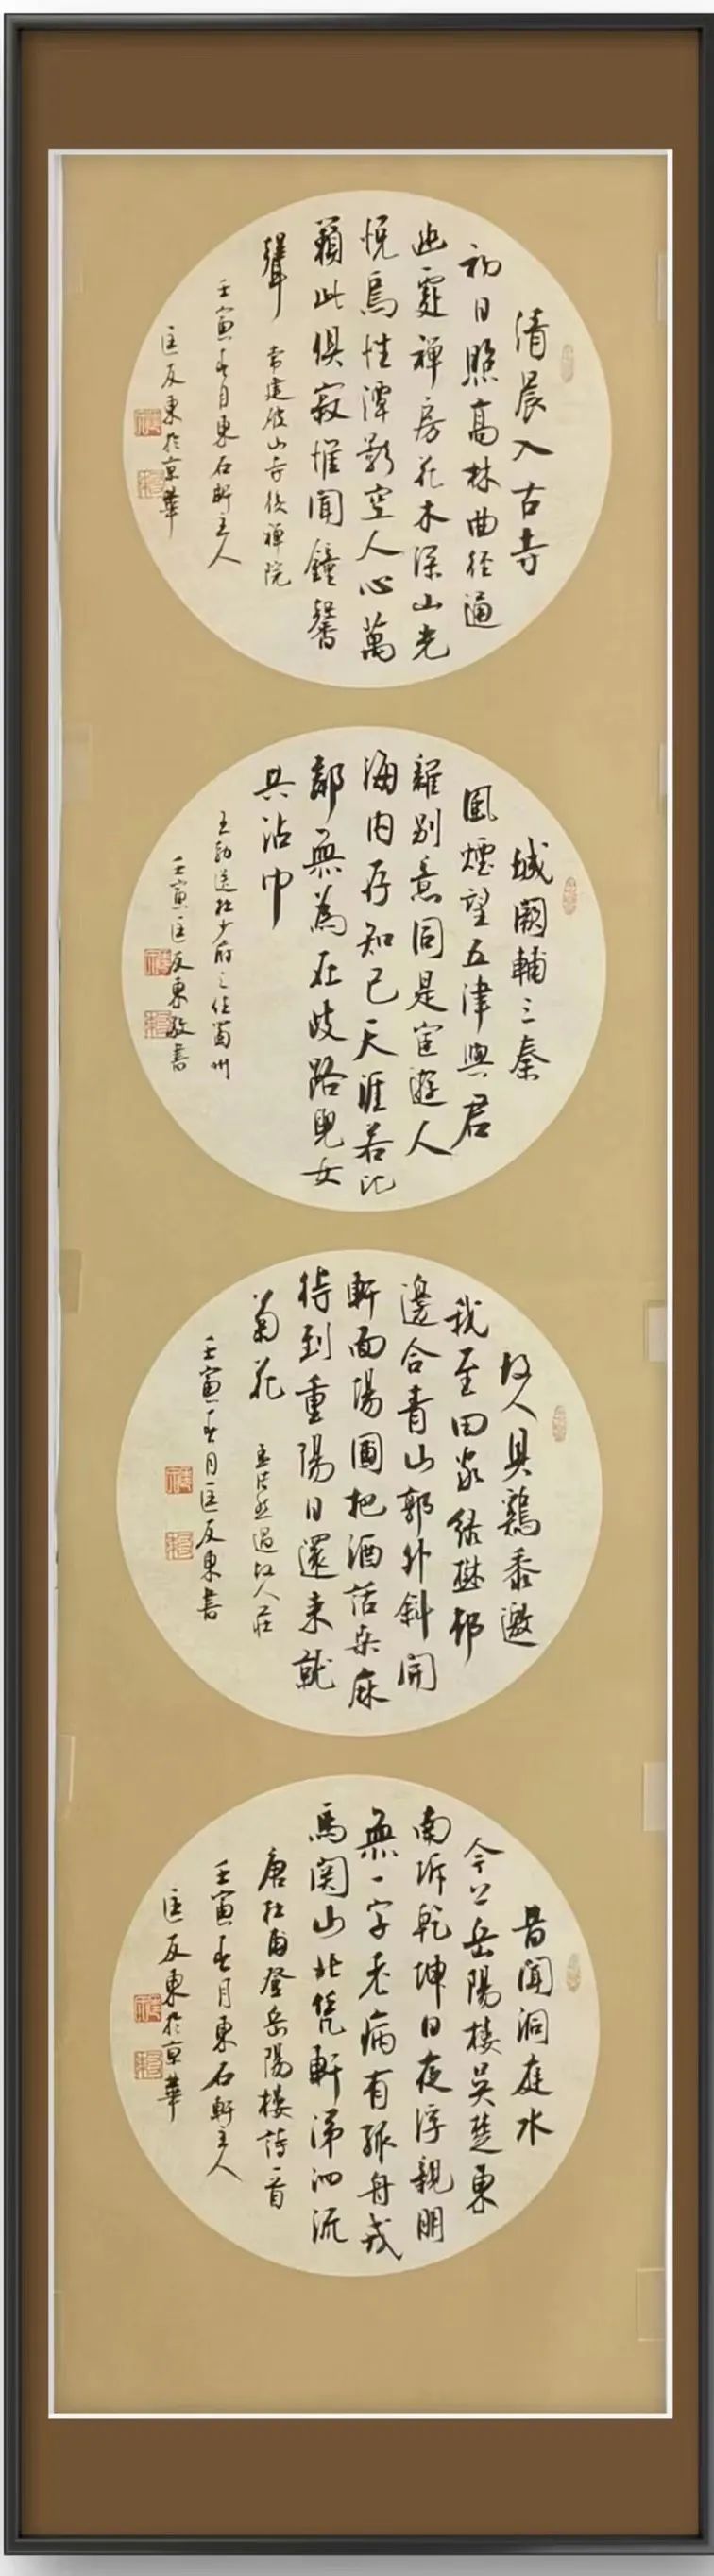 清晨入古寺
初日照高林曲徑通
幽處禪房花木深山光
悅鳥性潭影空人心萬
籟此俱寂惟聞鐘磬
聲
常建破山寺後禪院
壬寅春月東石軒主人
匡友東於京華
城闕輔三秦
風煙望五津與君
離別意同是宦遊人
海内存知己天涯若比
鄰無為在歧路兒女
共沾巾
王勃送杜少府之任蜀州
壬寅匡友東敬書
故人具鷄黍邀
我至田家綠樹邨
邊合青山郭外斜開
軒面場圃把酒話桑麻
待到重陽日還来就
菊花
孟浩然過故人莊
壬寅春月匡友東書
昔聞洞庭水
今上岳陽樓吴楚東
南坼乾坤日夜浮親朋
無一字老病有孤舟戎
馬関山北凭軒涕泗流
唐杜甫登岳陽樓詩一首
壬寅春月東石軒主人
匡友東於京華